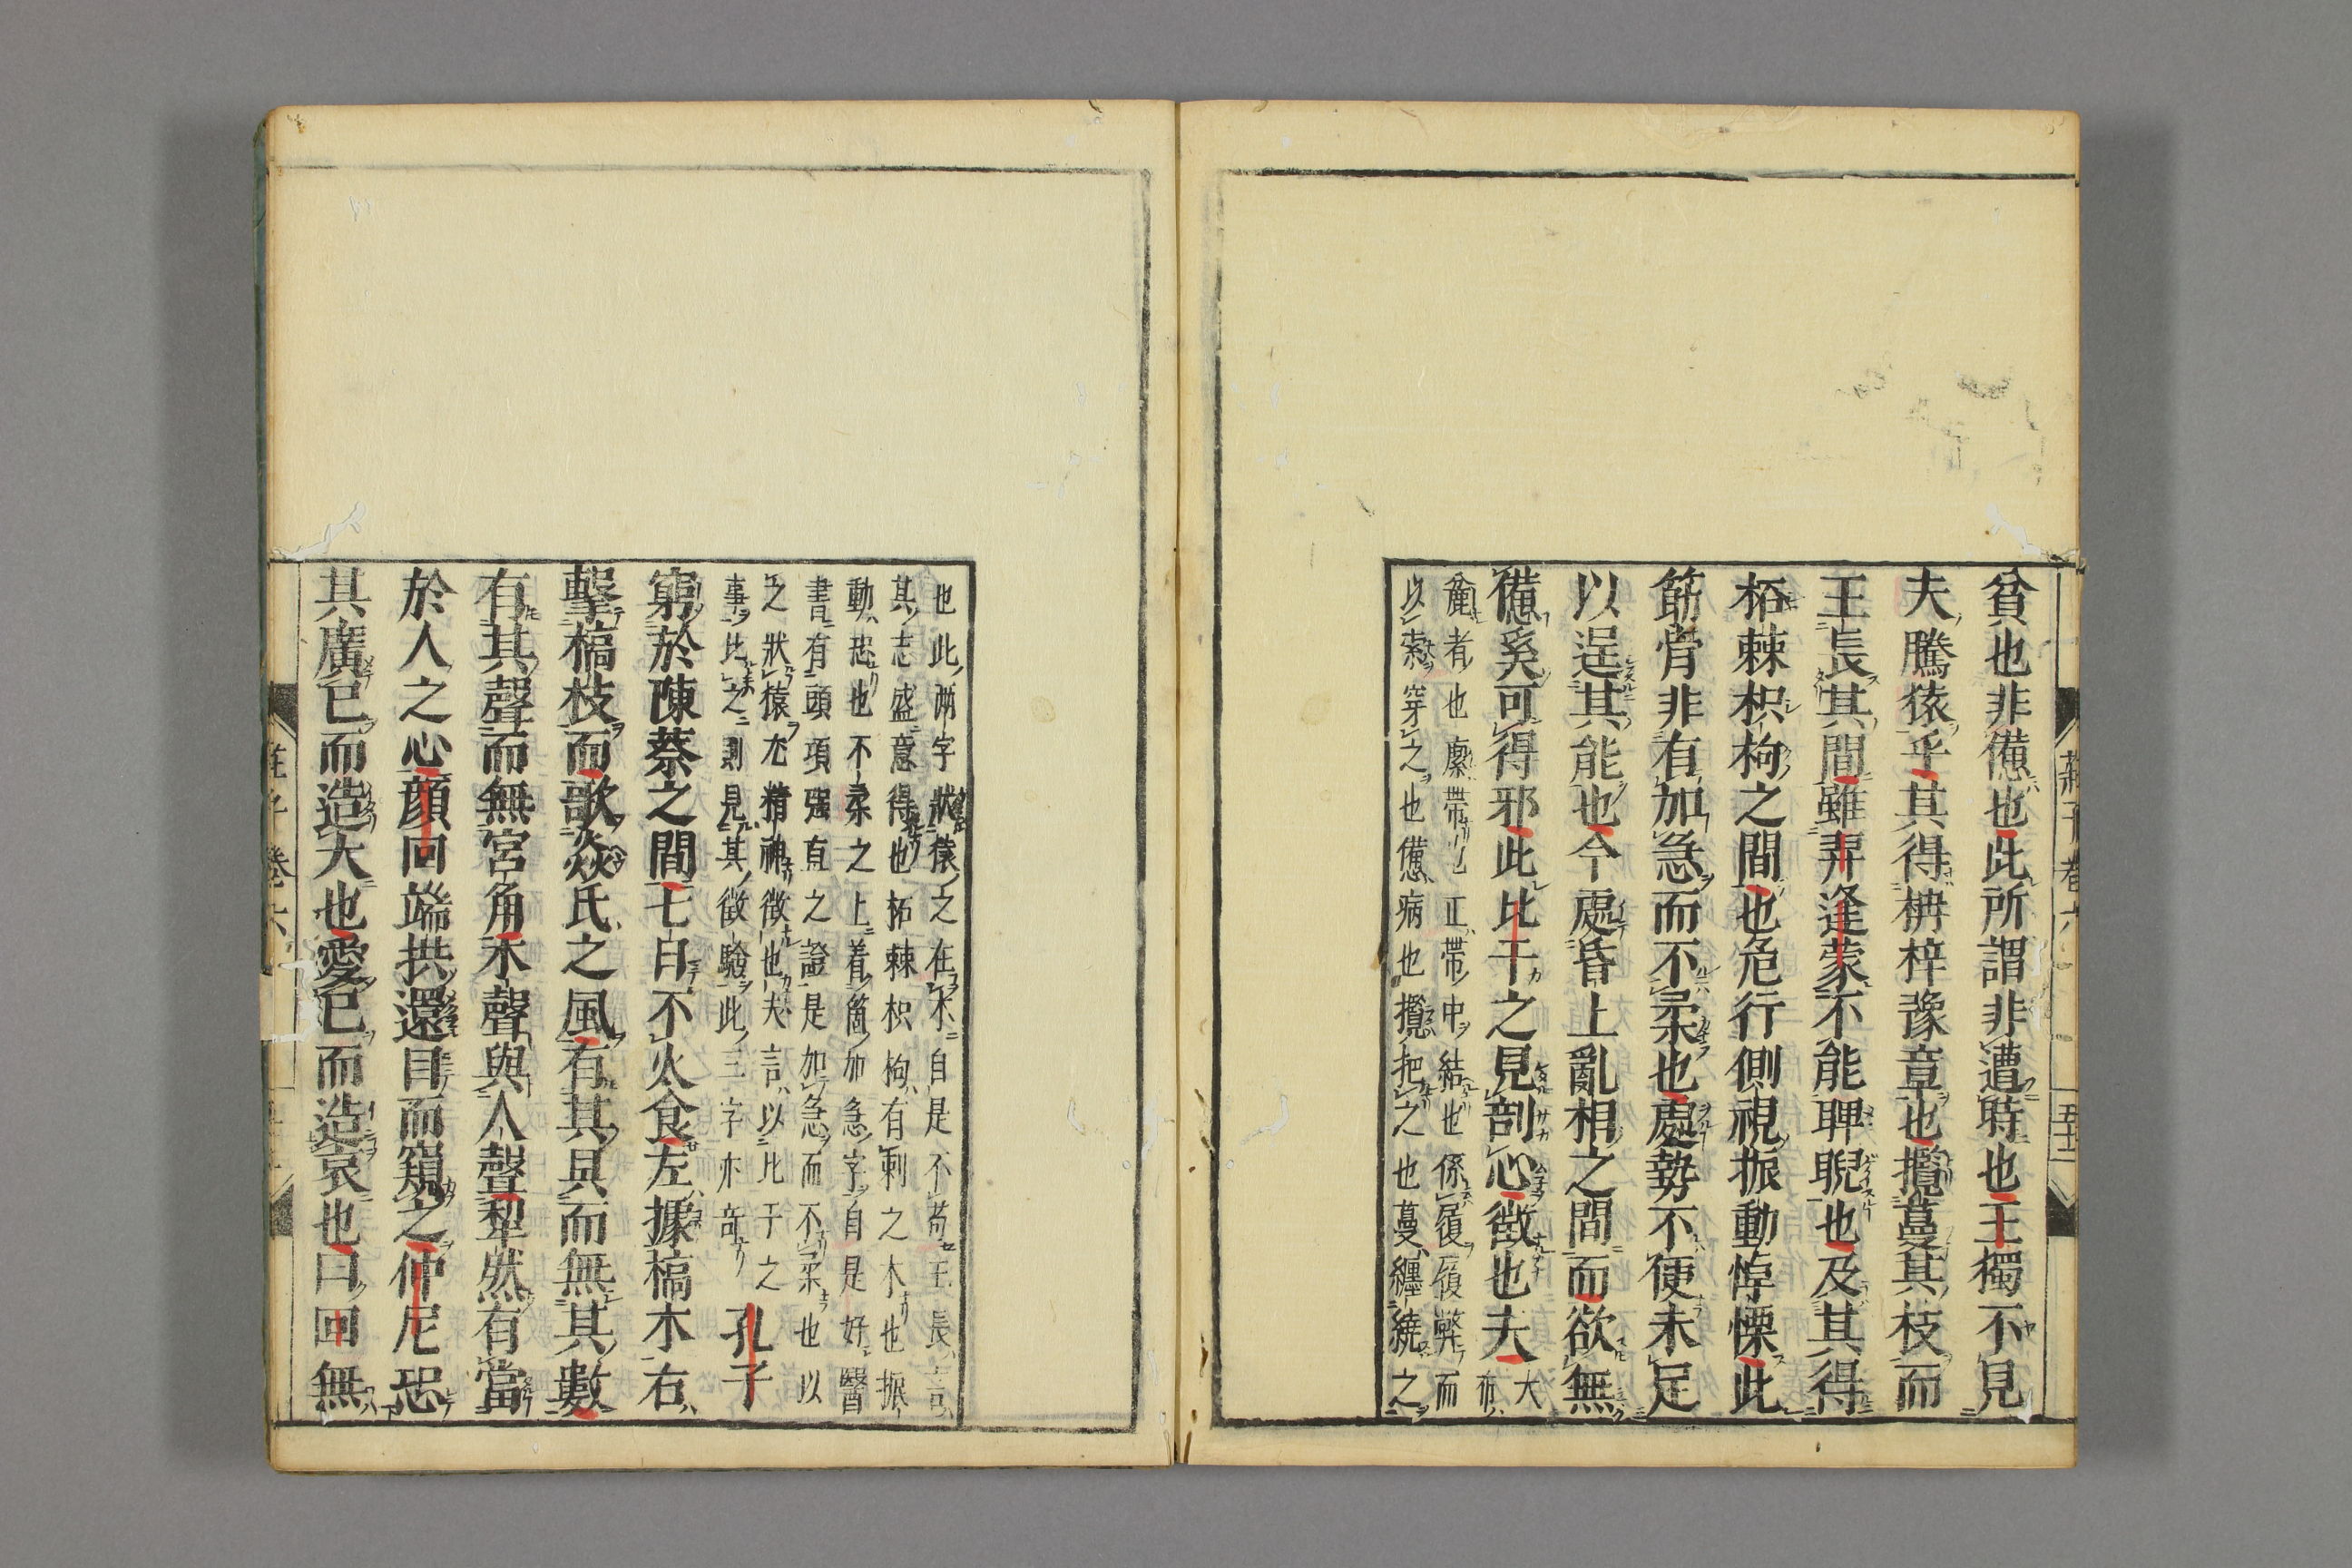 貧也非憊也此所謂非遭時也王獨不見
夫騰猿乎其得枏梓豫章也攬蔓其枝而
王長其間雖羿逢蒙不能眄睨也及其得
柘棘枳枸之間也危行側視振動悼慄此
筋骨非有加急而不柔也處勢不便未足
以逞其能也今處昏上亂相之間而欲無
憊奚可得邪此比干之見剖心徵也夫大布
麄者也緳帶也正帶中結也係履履弊而
以索穿之也憊病也攬把之也蔓纏繞之
也此兩字狀猿之在木自是不苟王長言
其志盛意得也柘棘枳枸有刺之木也振
動恐也不柔之上着箇加急字自是好醫
書有頭項強直之證是加急而不柔也以
之狀猿尤精神徵也夫言以比干之
事比之則見其徵驗此三字亦奇孔子
窮於陳蔡之間七日不火食左據槁木右
擊槁枝而歌焱氏之風有其具而無其數
有其聲而無宮角木聲與人聲犁然有當
於人之心顏回端拱還目而窺之仲尼恐
其廣己而造大也愛己而造哀也曰回無
莊子卷六